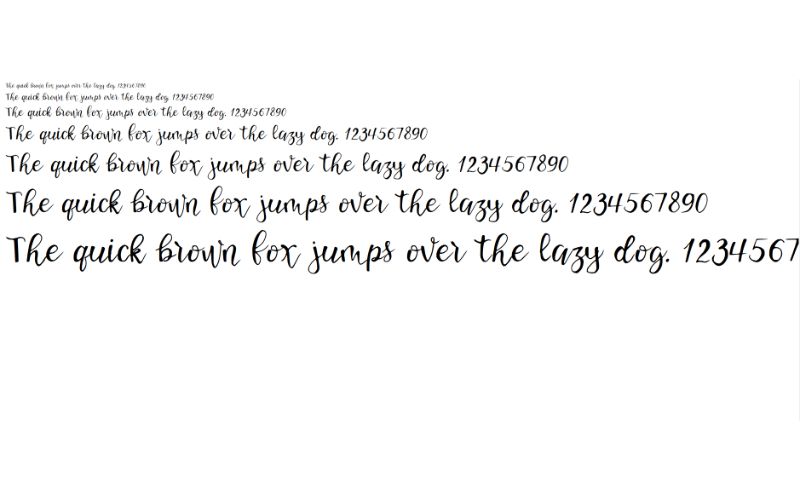 The quick brown fox jumps over the lazy dog. 1234567890
The quick brown fox jumps over the lazy dog. 1234567890
The quick brown fox jumps over the lazy dog. 1234567890
The quick brown fox jumps over the lazy dog. 1234567890
The quick brown fox jumps over the lazy dog. 1234567890
The quick brown fox jumps over the lazy dog. 1234567890
The quick brown fox jumps over the lazy dog. 1234567